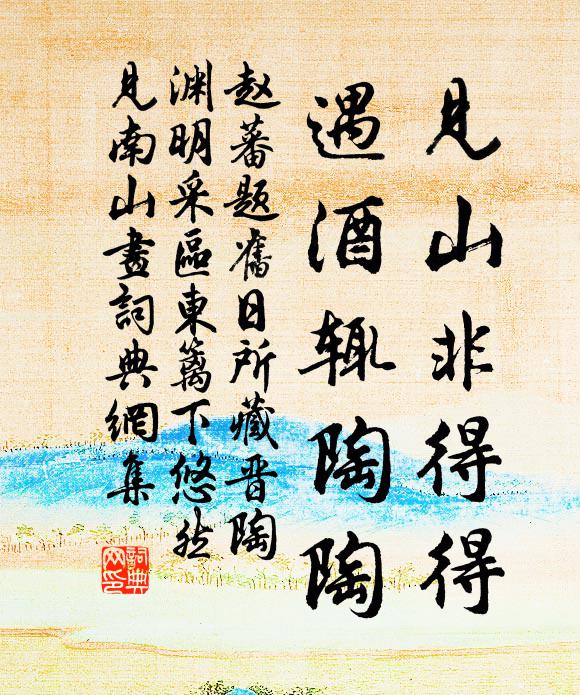 見山非得得
遇酒輒陶陶
赵蕃题舊日所藏晋陶
渊明采區東籬下悠然
見南山畫詞典網集
詞典
网印